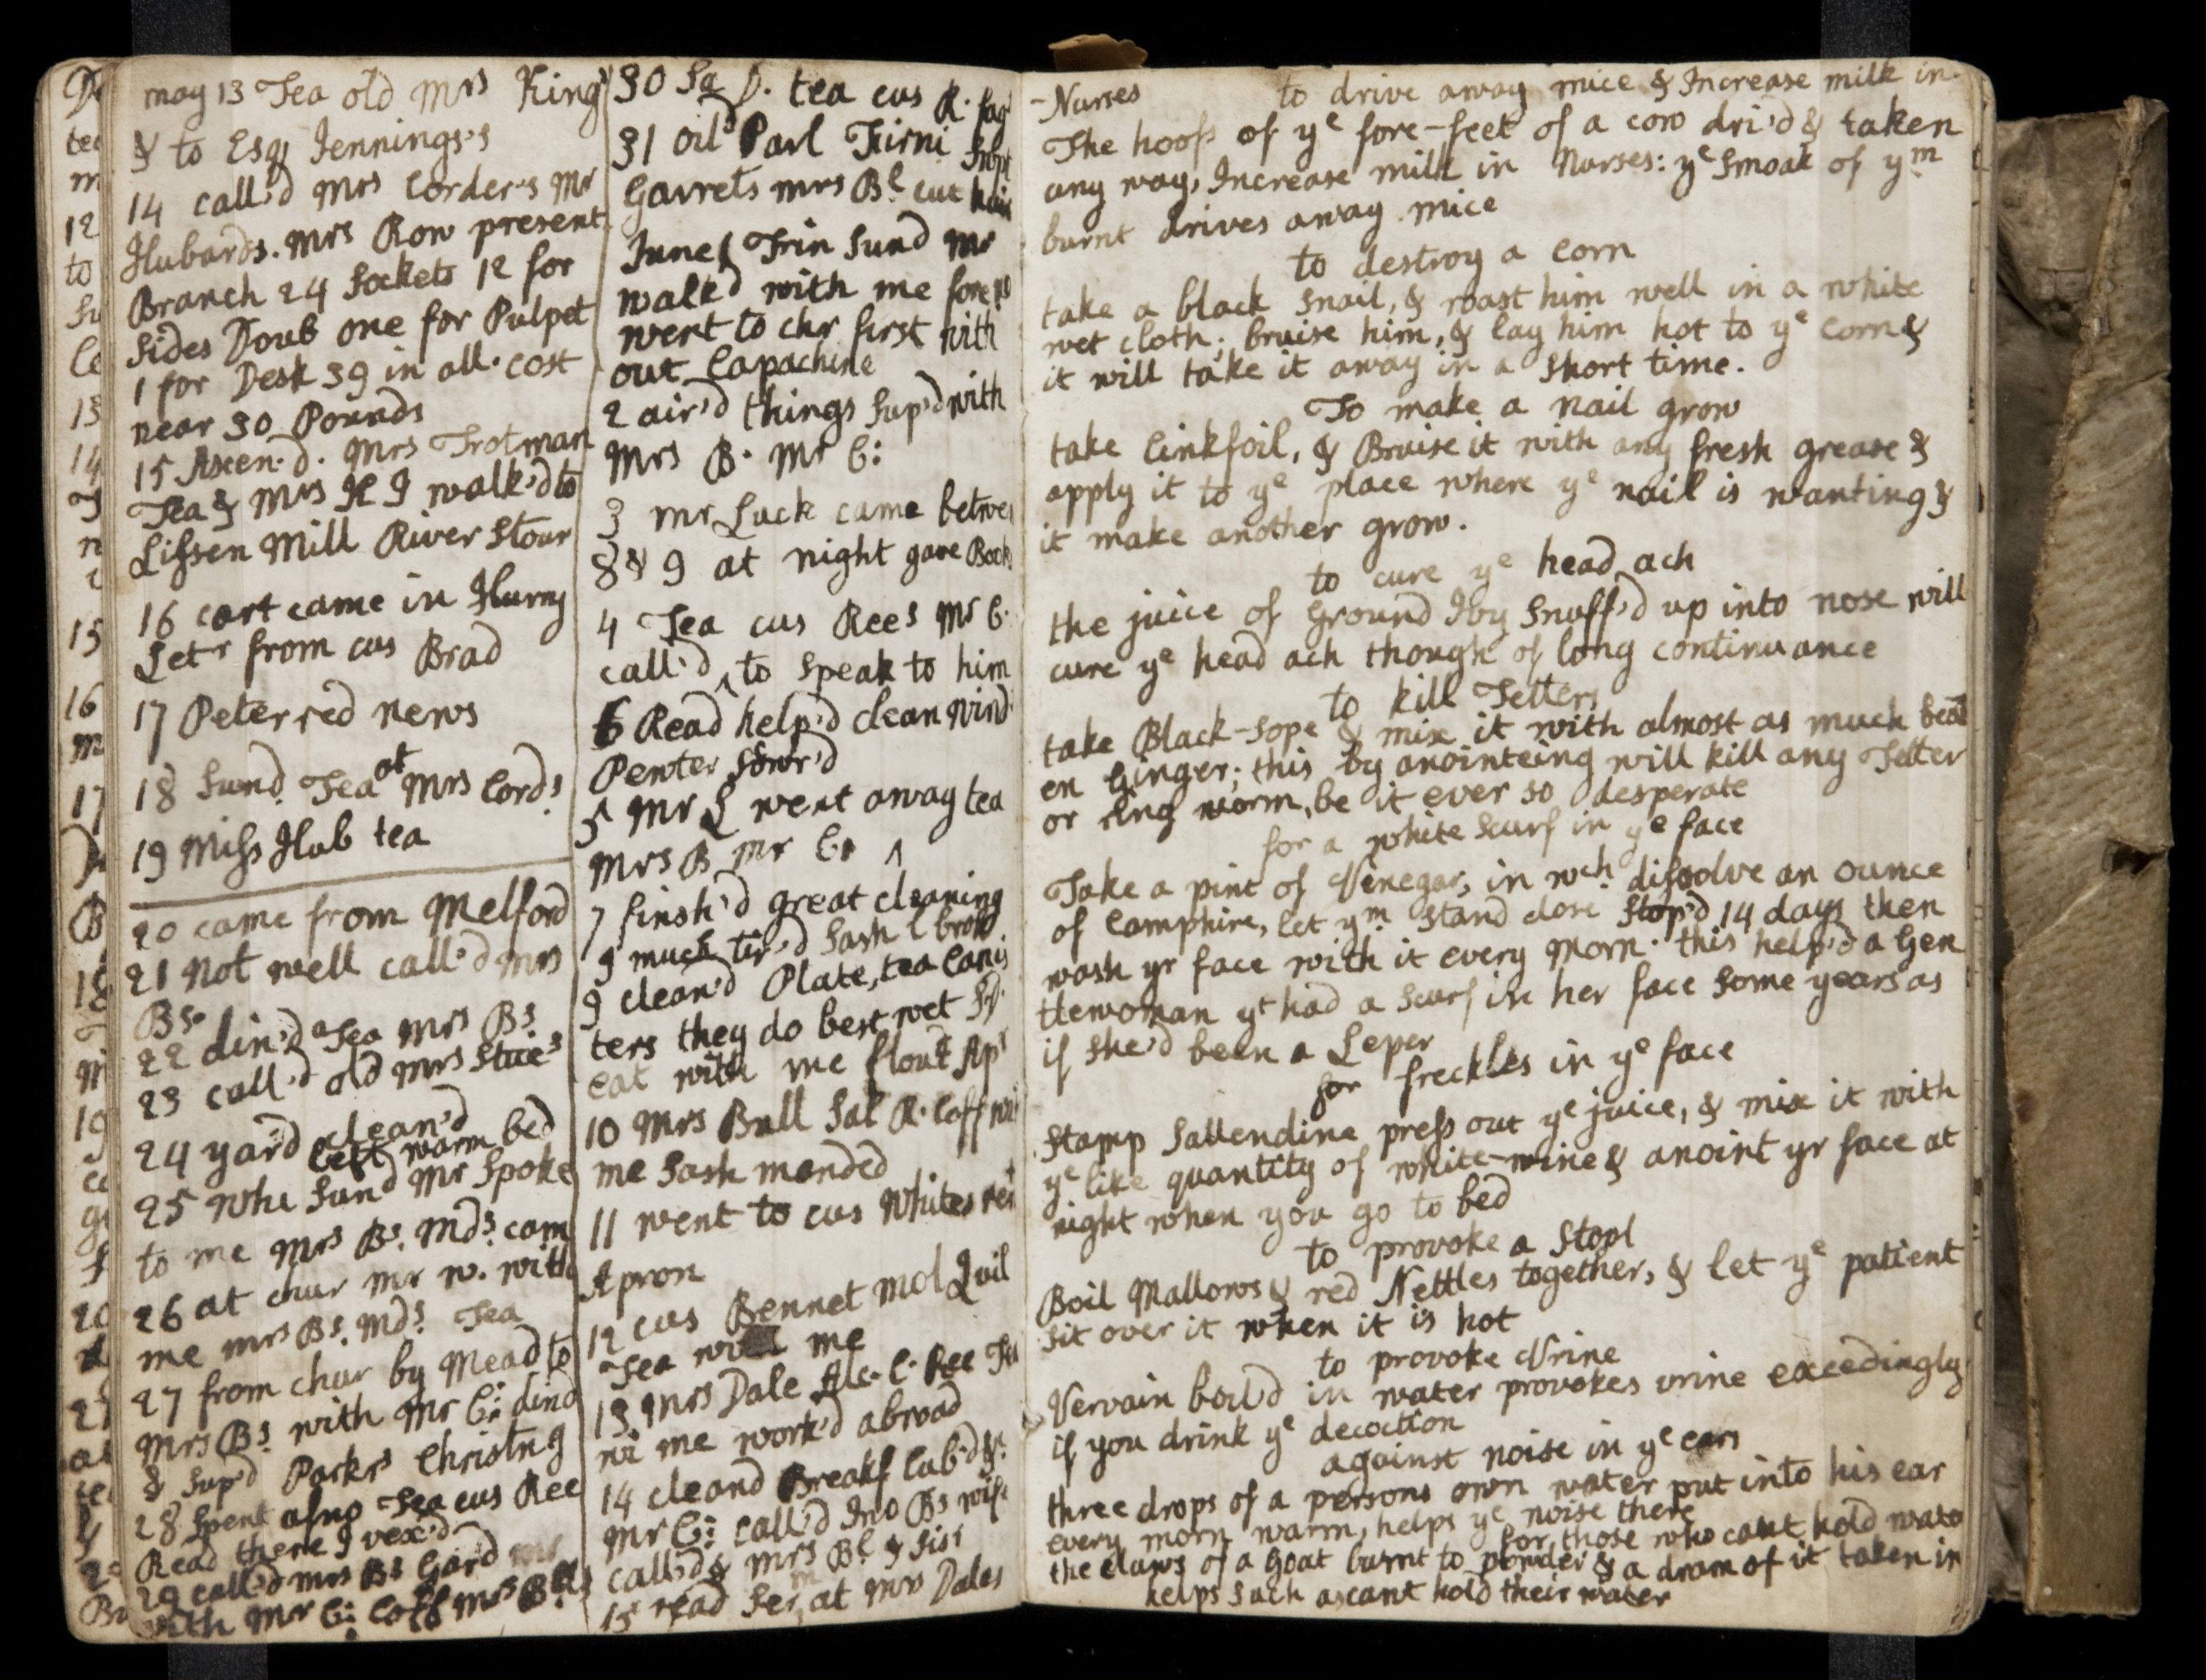 may 13 Tea old Mrs King
& to Esqr Jennings's
14 call'd Mrs Corder's Mr
Hubards. Mrs Row present
Branch 24 Sockets 12 for
sides Doub one for Pulpet
1 for Desk 39 in all. cost
near 30 Pounds
15 Ascen. d. Mrs Trotman
Tea & Mrs H I walk'd to
Lissen Mill River Stour
16 cart came in Hurry
Letr from cus Brad
17 Peter red news
18 Sund. Tea at Mrs Cords
19 Miss Hub tea
20 came from Melford
21 Not well call'd Mrs
Bs.
22 din'd Tea Mrs Bs
23 call'd old Mrs
24 yard clean'd
left warm bed
25 Whi Sund Mr Spoke
to me Mrs Bs. Mds. com
26 at chur Mr w. with
me Mrs Bs. Mds. Tea
27 from chur by Mead to
Mrs Bs with Mr C: dind
& Sup'd Parkrs Christng
28 Spent afno Tea cus Ree
Read there I vex'd
29 call'd Mrs Bs Gard
with Mr C: Coff Mrs
30 Sa D. tea cus R.
31 oil'd Parl Firni
Garrets Mrs Bl cut hair
June 1 Trin Sund Mr
walk'd with me
went to chr first with
out Capachine
2 air'd things Sup'd with
Mrs B. Mr C:
3 Mr Luck came betwe
8 & 9 at night gave Book
4 Tea cus Rees Mr C.
call'd ^ to Speak to him
6 Read help'd clean wind
Pewter Sowr'd
5 ^ Mr L went away tea
Mrs B Mr C: ^
7 finsh'd great cleaning
9 much tir'd Sash
9 clean'd Plate, tea Canis
ters they do best wet
eat with me
10 Mrs Bull Sal R. Coff wi
me Sash mended
11 went to cus Whites
Apron
12 cus Bennet mol Quil
Tea with me
13 Mrs Dale Alc. C. Ree
wi me work'd abroad
14 cleand Breakf Cub'd &
Mr C: call'd Jno Bs wife
call'd & Mrs Bl & Siss
15 read Ser, at Mrs Dales
to drive away mice & Increase milk in
-Nurses
The hoofs of ye fore-feet of a cow dri'd & taken
any way, Increase milk in Nurses: ye Smoak of ym
burnt drives away mice
to destroy a corn
take a black Snail, & roast him well in a white
wet cloth; bruise him, & lay him hot to ye corn &
it will take it away in a Short time.
To make a nail grow
take Cinkfoil, & Bruise it with any fresh grease &
apply it to ye place where ye nail is wanting &
it make another grow.
to cure ye head ach
the juice of Ground Ivy Snuff'd up into nose will
cure ye head ach though of long continuance
to kill Tetters
take Black-Sope & mix it with almost as much beat
en Ginger; this by anointeing will kill any Tetter
or ring worm, be it ever so desperate
for a white Scurf in ye face
Take a pint of Vinegar, in wch dissolve an ounce
of Camphire, let ym Stand close Stop'd 14 days then
wash yr face with it every Morn. this help'd a Gen
tlewoman yt had a Scurf in her face Some years as
if She'd been a Leper
for freckles in ye face
Stamp Sallendine press out ye juice, & mix it with
ye like quantity of white-wine & anoint yr face at
night when you go to bed
to provoke a Stool
Boil Mallows & red Nettles together, & let ye patient
Sit over it when it is hot
to provoke Urine
Vervain boil'd in water provokes urine exceedingly
if you drink ye decoction
against noise in ye ears
three drops of a persons own water put into his ear
every morn warm, helps ye noise there
for those who cant hold wate
the claws of a Goat burnt to powder & a dram of it taken in
helps Such as cant hold their water